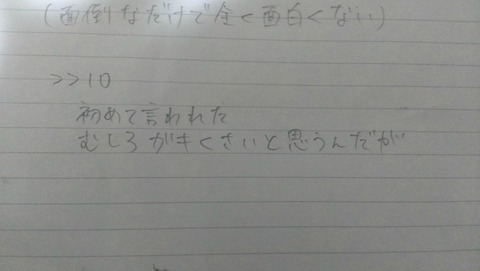 (面倒なだけで全く面白くない)
>>10
初めて言われた
むしろガキくさいと思うんだが